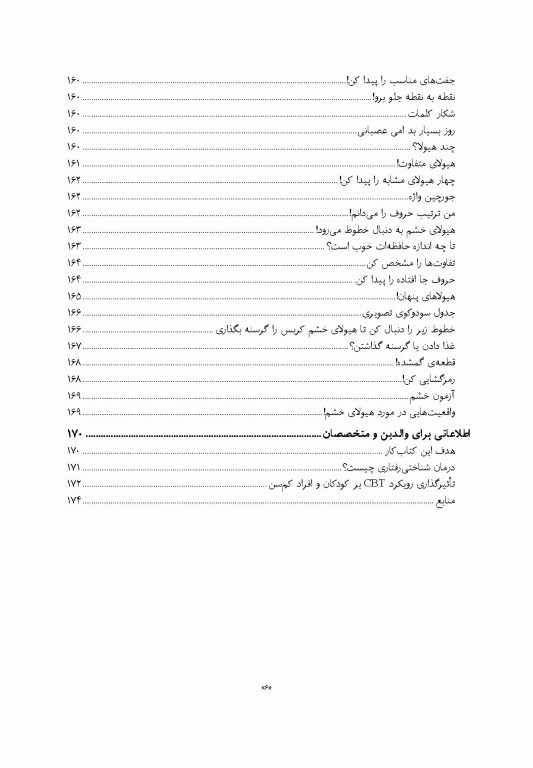 جفت‌های مناسب را پیدا کن! ۱۶۰
نقطه به نقطه جلو برو! ۱۶۰
شکار کلمات ۱۶۰
روز بسیار بد امی عصبانی ۱۶۰
چند هیولا؟ ۱۶۰
هیولای متفاوت! ۱۶۱
چهار هیولای مشابه را پیدا کن! ۱۶۲
جورچین واژه ۱۶۲
من ترتیب حروف را می‌دانم! ۱۶۲
هیولای خشم به دنبال خطوط می‌رود! ۱۶۳
تا چه اندازه حافظه‌ات خوب است؟ ۱۶۳
تفاوت‌ها را مشخص کن ۱۶۴
حروف جا افتاده را پیدا کن ۱۶۴
هیولاهای پنهان! ۱۶۵
جدول سودوکوی تصویری ۱۶۶
خطوط زیر را دنبال کن تا هیولای خشم کریس را گرسنه بگذاری ۱۶۶
غذا دادن یا گرسنه گذاشتن؟ ۱۶۷
قطعه‌ی گمشده! ۱۶۸
رمزگشایی کن! ۱۶۸
آزمون خشم ۱۶۹
واقعیت‌هایی در مورد هیولای خشم! ۱۶۹
اطلاعاتی برای والدین و متخصصان ۱۷۰
هدف این کتاب‌کار ۱۷۰
درمان شناختی‌رفتاری چیست؟ ۱۷۱
تأثیرگذاری رویکرد CBT بر کودکان و افراد کم‌سن ۱۷۲
منابع ۱۷۴
«۶»